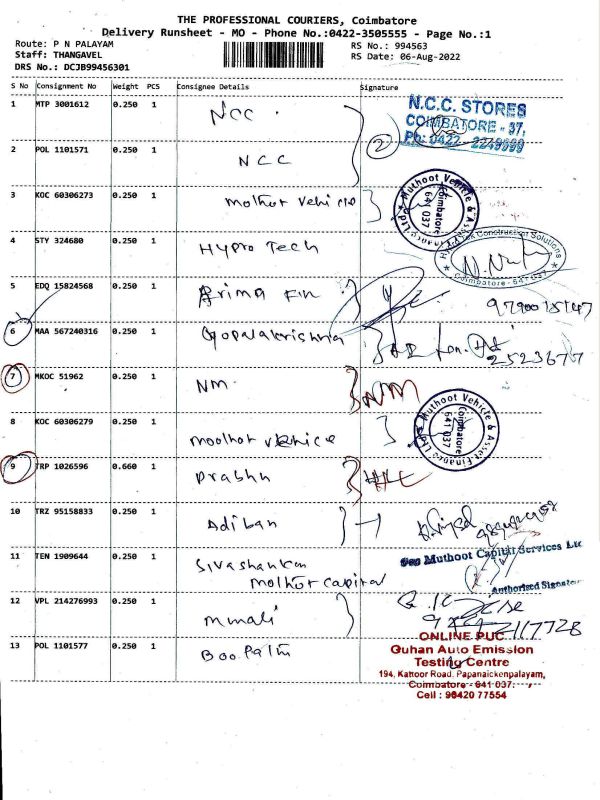 THE PROFESSIONAL COURIERS, Coimbatore
Delivery Runsheet - MO - Phone No.:0422-3505555 - Page No.:1
Route: P N PALAYAM
Staff: THANGAVEL
DRS No.: DCJB99456301
RS No.: 994563
RS Date: 06-Aug-2022
S No Consignment No Weight PCS Consignee Details Signature
1 MTP 3001612 0.250 1 NCC
N.C.C. STORES
COIMBATORE - 37,
PH: 0422 - 2249999
2 POL 1101571 0.250 1 NCC 2
3 KOC 60306273 0.250 1 Mothot Vehicle
Muthoot Vehicle & Asset Finance Ltd
Coimbatore
641 037
4 STY 324680 0.250 1 Hypro Tech
Construction Solutions
Coimbatore - 641 037
5 EDQ 15824568 0.250 1 Arima Fin
6 MAA 567240316 0.250 1 Gopalakrishna
2523677
7 MKOC 51962 0.250 1 NM. NM
8 KOC 60306279 0.250 1 moothot vehicle
Muthoot Vehicle & Asset Finance Ltd
Coimbatore
641 037
9 TRP 1026596 0.660 1 Prabhu
10 TRZ 95158833 0.250 1 Adiban
11 TEN 1909644 0.250 1 Sivashankar
Mothot capital
Muthoot Capital Services Ltd
Authorised Signatory
12 VPL 214276993 0.250 1 Mmali
13 POL 1101577 0.250 1 Boopalm
ONLINE PUC
Guhan Auto Emission
Testing Centre
194, Kattoor Road, Papanaickenpalayam,
Coimbatore - 641 037.
Cell : 98420 77554